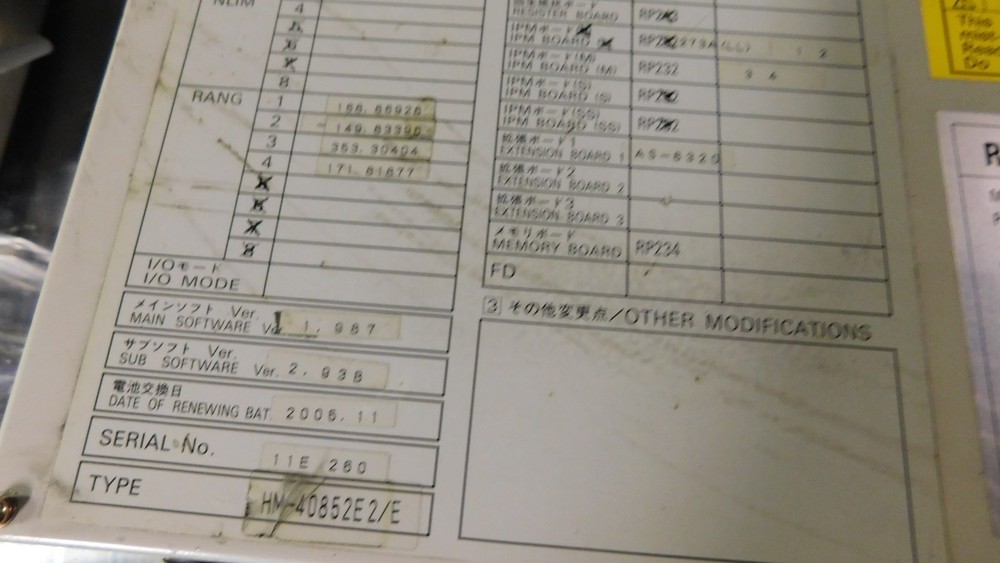 NLIM
4
8
RANG
1 166.66926
2 -149.83396
3 353.30404
4 171.61677
8
I/Oモード
I/O MODE
メインソフト Ver.
MAIN SOFTWARE Ver. 1.987
サブソフト Ver.
SUB SOFTWARE Ver. 2.93B
電池交換日
DATE OF RENEWING BAT. 2006.11
SERIAL No. 11E 260
TYPE HM-40852E2/E
RESISTER BOARD
IPMボード
IPM BOARD
1 2
IPMボード(M)
IPM BOARD (M) RP232 3 4
IPMボード(S)
IPM BOARD (S)
IPMボード(SS)
IPM BOARD (SS)
拡張ボード1
EXTENSION BOARD 1 AS-6320
拡張ボード2
EXTENSION BOARD 2
拡張ボード3
EXTENSION BOARD 3
メモリボード
MEMORY BOARD RP234
FD
3 その他変更点/OTHER MODIFICATIONS
This
Do